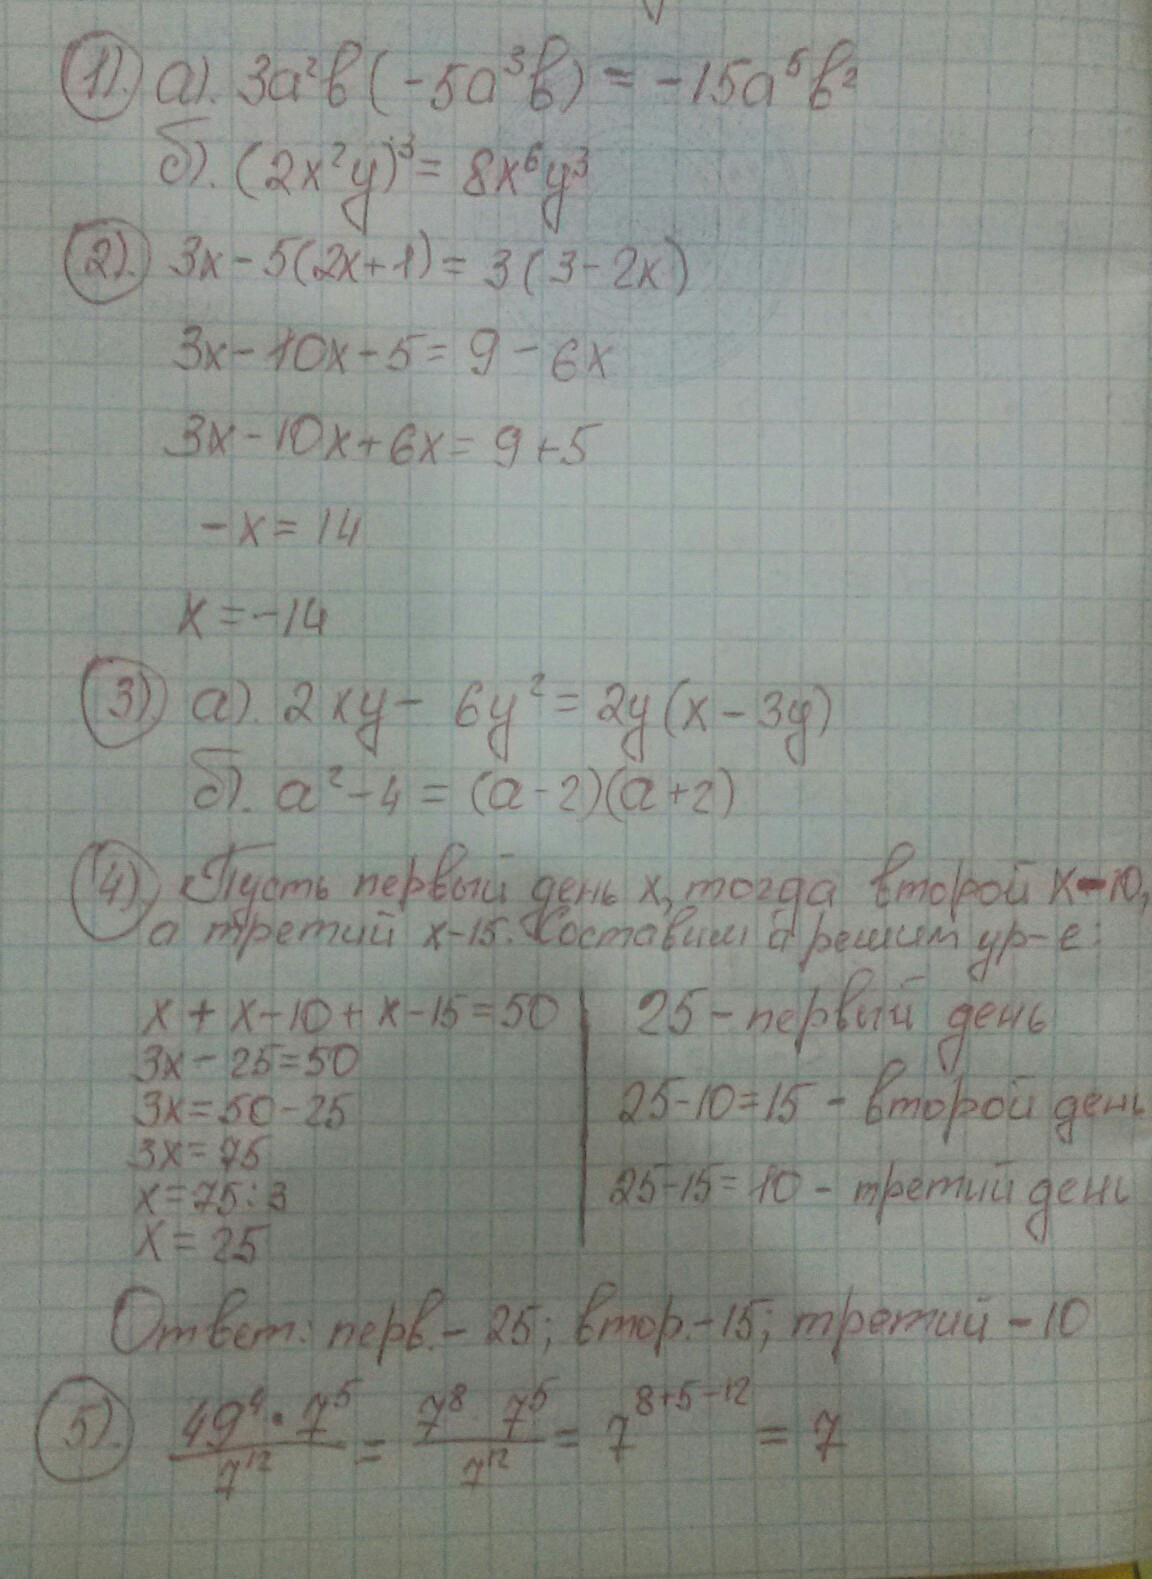 1). а). 3a²b(-5a³b) = -15a⁵b²
б). (2x²y)³ = 8x⁶y³
2). 3x - 5(2x+1) = 3(3-2x)
3x - 10x - 5 = 9 - 6x
3x - 10x + 6x = 9 + 5
-x = 14
x = -14
3). а). 2xy - 6y² = 2y(x - 3y)
б). a² - 4 = (a-2)(a+2)
4). Пусть первый день x, тогда второй x-10,
а третий x-15. Составим и решим ур-е:
x + x-10 + x-15 = 50
3x - 25 = 50
3x = 50-25
3x = 75
x = 75:3
x = 25
25 - первый день
25-10=15 - второй день
25-15=10 - третий день
Ответ: перв. - 25; втор. - 15; третий - 10
5). 49⁴ • 7⁵ / 7¹² = 7⁸ 7⁵ / 7¹² = 7⁸⁺⁵⁻¹² = 7